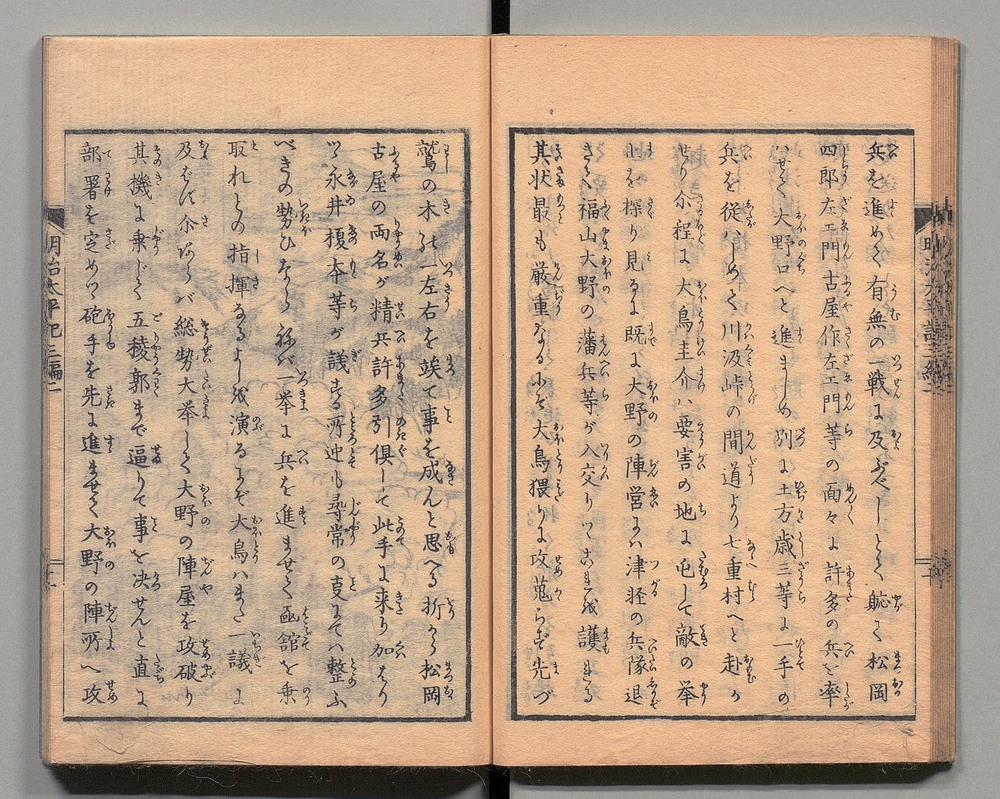 兵を進めて有無の一戦に及ぶべしとて軈て松岡
四郎左エ門古屋作左エ門等の面々に許多の兵を率
いさせて大野口へと進ましめ別に土方歳三等に一手の
兵を従ハしめて川汲峠の間道より七重村へと赴か
せり介程に大鳥圭介ハ要害の地に屯して敵の挙
止を探り見るに既に大野の陣営にハ津軽の兵隊退
きて福山大野の藩兵等が入交りてこれを護まる
其状最も厳重なるにぞ大鳥猥りに攻蒐らず先づ
鷲の木の一左右を竢て事を成んと思へる折から松岡
古屋の両名が精兵許多引倶して此手に来り加はり
つ永井榎本等が議する所迚も尋常の事にてハ整ふ
べきの勢ひならねバ一挙に兵を進ませて凾館を乗
取れとの指揮なるよしを演るにぞ大鳥ハまた一議に
及ばず介あらバ総勢大挙して大野の陣屋を攻破り
其機に乗じて五稜郭まで逼りて事を決せんと直に
部署を定めつ砲手を先に進ませて大野の陣所へ攻
明治太平記三編二